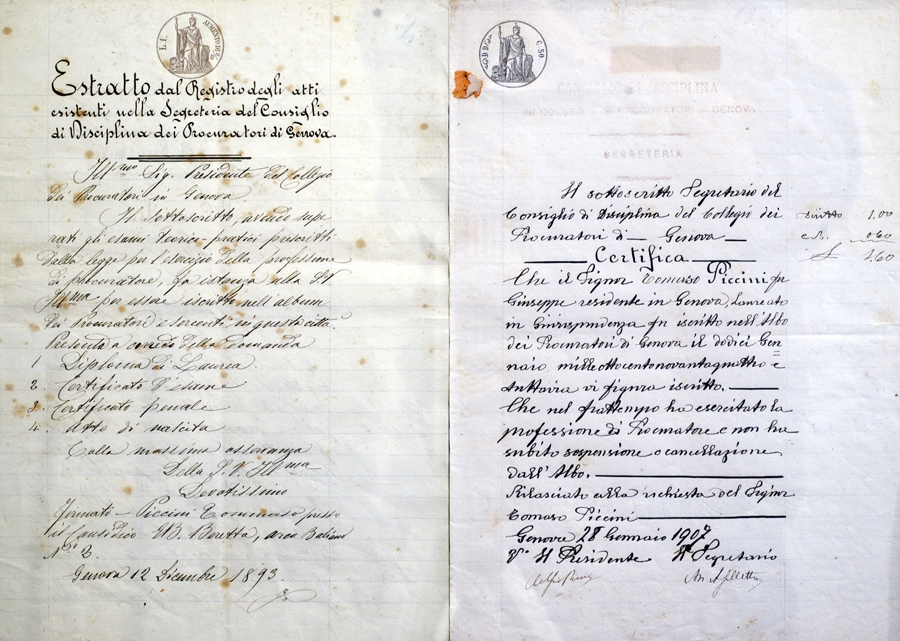 L.I. AUMENTO DI 2/10
Estratto dal Registro degli atti
esistenti nella Segreteria del Consiglio
di Disciplina dei Procuratori di Genova.
Ill.mo Sig. Presidente del Collegio
dei Procuratori in Genova
Il sottoscritto avendo supe
rati gli esami teorico-pratici prescritti
dalla legge per l'esercizio della professione
di procuratore, fa istanza alla S.V.
Ill.ma per essere iscritto nell'album
dei Procuratori esercenti in questa città.
Presenta a corredo della domanda
1 Diploma di Laurea.
2. Certificato d'esame
3 Certificato penale
4. Atto di nascita
Colla massima osservanza
Della S.V. Ill.ma
Devotissimo
Firmato - Piccini Tommaso presso
il Causidico GB. Beretta,
Genova 12 Dicembre 1893.
C. 50
CONSIGLIO DI DISCIPLINA
PROCURATORI DI GENOVA
SEGRETERIA
Il sottoscritto Segretario del
Consiglio di Disciplina del Collegio dei
Procuratori di Genova
Certifica
Che il Signor Tomaso Piccini fu
Giuseppe residente in Genova, Laureato
in Giurisprudenza fu iscritto nell'Albo
dei Procuratori di Genova il dodici Gen
naio milleottocentonovantaquattro e
tuttavia vi figura iscritto.
Che nel frattempo ha esercitato la
professione di Procuratore e non ha
subito sospensione o cancellazione
dall'Albo.
Rilasciato alla richiesta del Signor
Tomaso Piccini
Genova 28 Gennaio 1907
V° Il Presidente Il Segretario
diritto 1.00
0.60
1.60